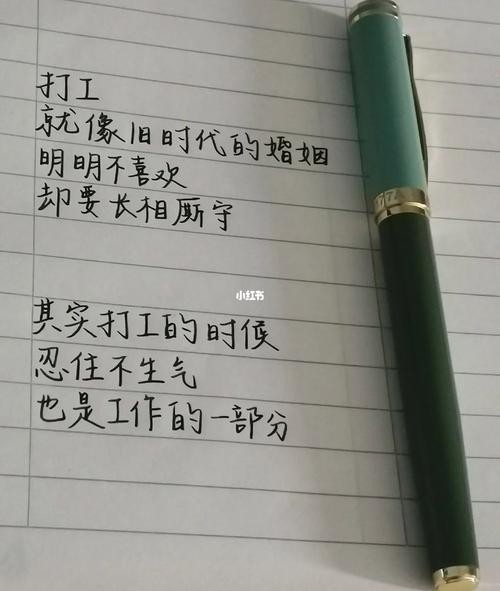 打工
就像旧时代的婚姻
明明不喜欢
却要长相厮守
小红书
其实打工的时候
忍住不生气
也是工作的一部分